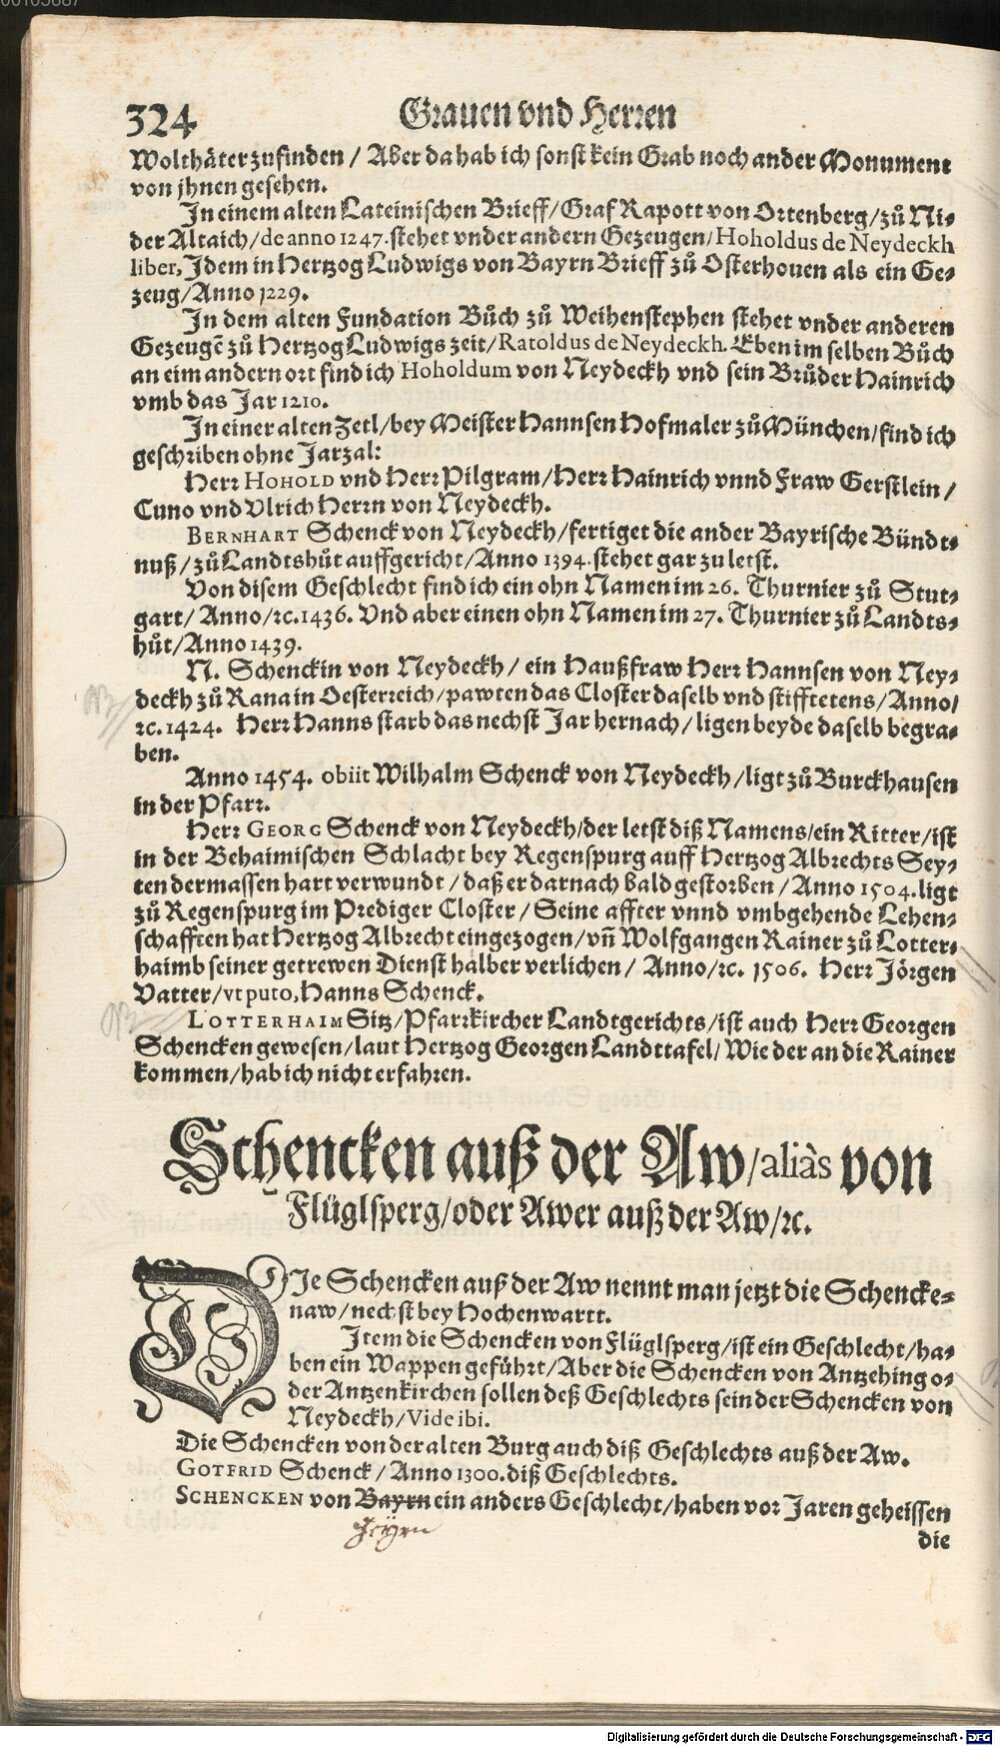 324 Grauen vnd Herren
Wolthäter zufinden / Aber da hab ich sonst kein Grab noch ander Monument
von jhnen gesehen.
In einem alten Lateinischen Brieff/Graf Rapott von Ortenberg/zů Ni-
der Altaich/de anno 1247. stehet vnder andern Gezeugen/Hoholdus de Neydeckh
liber, Jdem in Hertzog Ludwigs von Bayrn Brieff zů Osterhouen als ein Ge-
zeug/Anno 1229.
In dem alten Fundation Bůch zů Weihenstephen stehet vnder anderen
Gezeugẽ zů Hertzog Ludwigs zeit/Ratoldus de Neydeckh. Eben im selben Bůch
an eim andern ort find ich Hoholdum von Neydeckh vnd sein Brůder Hainrich
vmb das Jar 1210.
In einer alten Zetl/bey Meister Hannsen Hofmaler zů München/find ich
geschriben ohne Jarzal:
Herr HOHOLD vnd Herr Pilgram/Herr Hainrich vnnd Fraw Gerstlein /
Cuno vnd Vlrich Herrn von Neydeckh.
BERNHART Schenck von Neydeckh/fertiget die ander Bayrische Bündt-
nuß / zů Landtshůt auffgericht/Anno 1394. stehet gar zu letst.
Von disem Geschlecht find ich ein ohn Namen im 26. Thurnier zů Stut-
gart/ Anno/ꝛc. 1436. Vnd aber einen ohn Namen im 27. Thurnier zů Landts-
hůt/Anno 1439.
N. Schenckin von Neydeckh / ein Haußfraw Herr Hannsen von Ney-
deckh zů Rana in Oesterreich/pawten das Closter daselb vnd stifftetens/Anno/
ꝛc. 1424. Herr Hanns starb das nechst Jar hernach / ligen beyde daselb begra-
ben.
Anno 1454. obiit Wilhalm Schenck von Neydeckh /ligt zů Burckhausen
in der Pfarr.
Herr GEORG Schenck von Neydeckh/der letst diß Namens/ein Ritter/ist
in der Behaimischen Schlacht bey Regenspurg auff Hertzog Albrechts Sey-
ten dermassen hart verwundt / daß er darnach bald gestorben / Anno 1504. ligt
zů Regenspurg im Prediger Closter / Seine affter vnnd vmbgehende Lehen-
schafften hat Hertzog Albrecht eingezogen/vñ Wolfgangen Rainer zů Lotter-
haimb seiner getrewen Dienst halber verlichen / Anno/ꝛc. 1506. Herr Jörgen
Vatter/vt puto, Hanns Schenck.
LOTTERHAIM Sitz/Pfarrkircher Landtgerichts/ist auch Herr Georgen
Schencken gewesen/laut Hertzog Georgen Landttafel/ Wie der an die Rainer
kommen/hab ich nicht erfahren.
Schencken auß der Aw/aliàs von
Flüglsperg/oder Awer auß der Aw/ꝛc.
DIe Schencken auß der Aw nennt man jetzt die Schencke-
naw/nechst bey Hochenwartt.
Item die Schencken von Flüglsperg/ist ein Geschlecht/ha-
ben ein Wappen geführt/Aber die Schencken von Antzehing o-
der Antzenkirchen sollen deß Geschlechts sein der Schencken von
Neydeckh/Vide ibi.
Die Schencken von der alten Burg auch diß Geschlechts auß der Aw.
GOTFRID Schenck / Anno 1300. diß Geschlechts.
SCHENCKEN von Bayrn ein anders Geschlecht/haben vor Jaren geheissen
Geÿrn
die
Digitalisierung gefördert durch die Deutsche Forschungsgemeinschaft - DFG